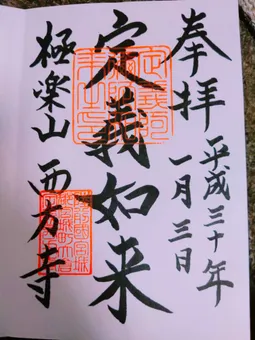 奉拝
平成三十年
一月三日
定義如来
極楽山 西方寺